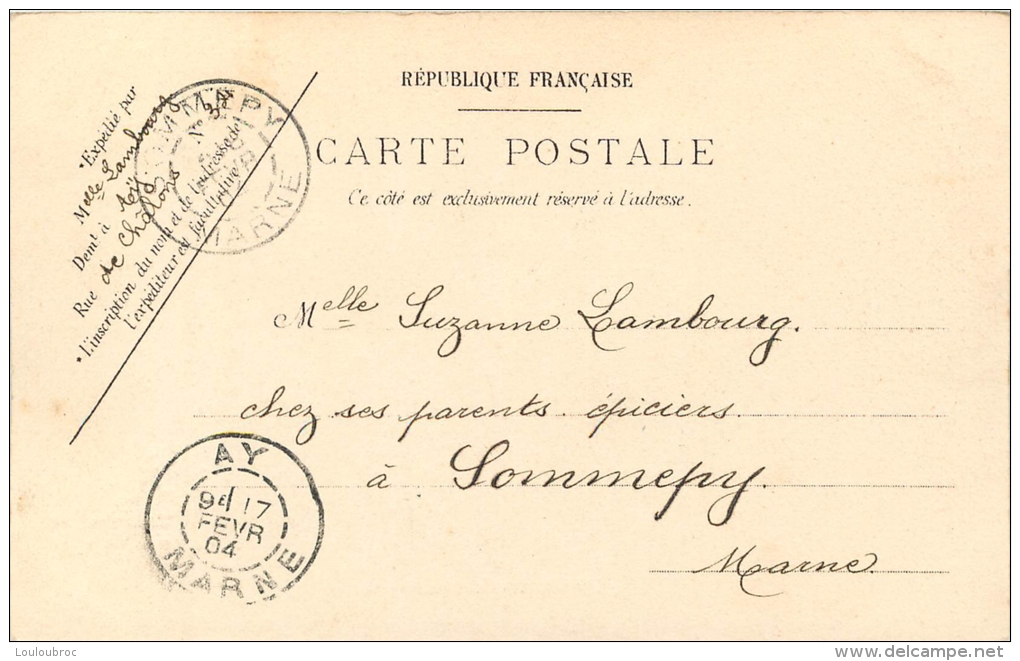 RÉPUBLIQUE FRANÇAISE
CARTE POSTALE
Ce côté est exclusivement réservé à l'adresse.
*Expédié par
Melle Lambourg
Demt à Aÿ
Rue de Châlons No 38
*L'inscription du nom et de l'adresse de
l'expéditeur est facultative
SOMMEPY
MARNE
Melle Suzanne Lambourg.
chez ses parents épiciers.
à Sommepy.
Marne.
AY
9E 17
FEVR
04
MARNE
Louloubroc
delcampe.net